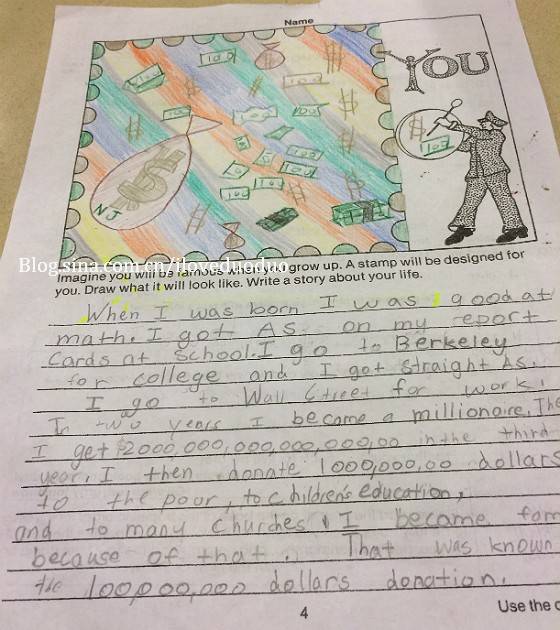 Name
YOU
100
100
100
100
100
100
100
100
100
NJ
Blog.sina.com.cn/iloveduoduo
Imagine you will be famous when you grow up. A stamp will be designed for
you. Draw what it will look like. Write a story about your life.
When I was born I was good at
math. I got As on my report
Cards at School. I go to Berkeley
for college and I got straight As.
I go to Wall Street for work.
In two years I became a millionaire. The
I get $2000,000,000,000,000,00 in the third
year. I then donate 1000,000,00 dollars
to the pour, to children's education,
and to many churches. I became fam
because of that. That was known
the 100,000,000 dollars donation.
4
Use the